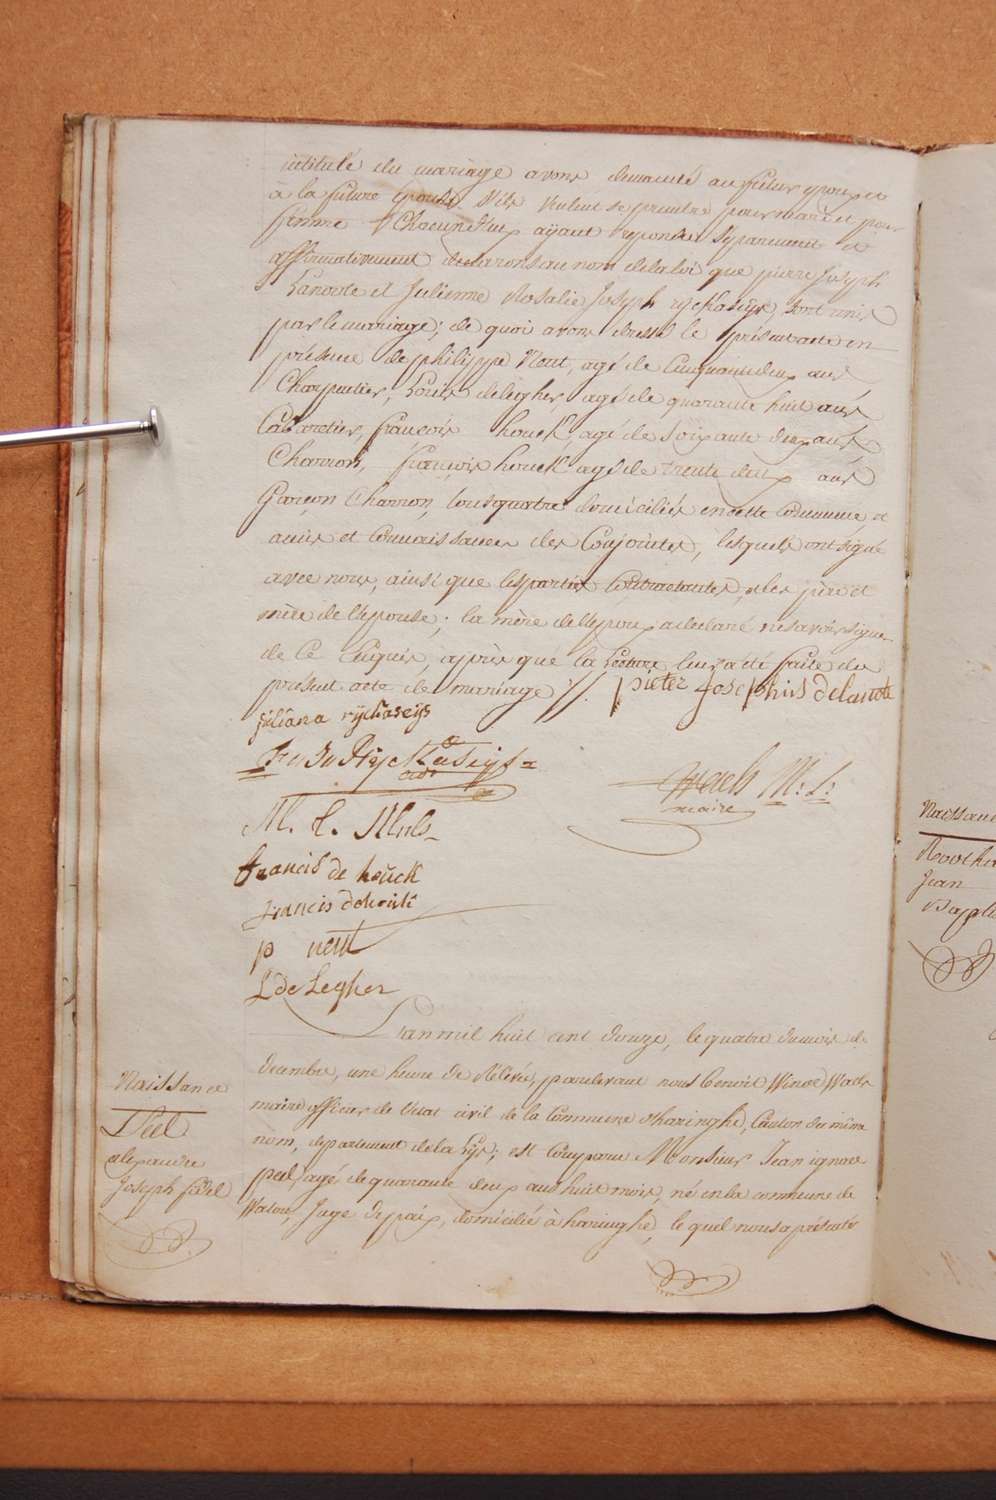 intitulé du mariage avons demandé au futur epoux et
à la future epouse s'ils veulent se prendre pour mari et pour
femme chacun d'eux ayant repondu séparement et
affirmativement declarons au nom de la loi que pierre Joseph
Lanoote et Julienne Rosalie Joseph ryckaseys sont unis
par le mariage; de quoi avons dressé le présent acte en
présence de philippe Neut, agé de Cinquante deux ans
Charpentier, Louis delegher, agé de quarante huit ans
Cabaretier, françois houck, agé de Soixante deux ans
Charron, françois houck agé de trente deux ans
Garçon Charron, tous quatre domiciliés en cette Commune et
amis et Connaissances des Conjointes, lesquels ont signé
avec nous, ainsi que les parties Contractantes, et les père et
mère de l'epouse; la mère de l'epoux a declaré ne savoir signer
de Ce Enquis, après que la Lecture leur a été faite du
présent acte de mariage //. pieter Josephus delanote
Juliana ryckaseijs
F. Ryckaseys
Waels M: L:
maire
M. C. Mals
francis de houck
francis dehouck
p neut
L de Legher
L'an mil huit cent douze, le quatre du mois de
decembre, une heure de Relevée, pardevant nous benoit Winoc Waels
maire officier de l'etat civil de la Commune d'haringhe, Canton du même
nom, departement de la Lys; est Comparu Monsieur Jean ignace
peel, agé de quarante deux ans huit mois, né en la commune de
Watou, Juge de paix, domicilié à haringhe, le quel nous a présenté
Naissance
Peel
alexandre
Joseph fidel
Naissance
Jean
Baptis